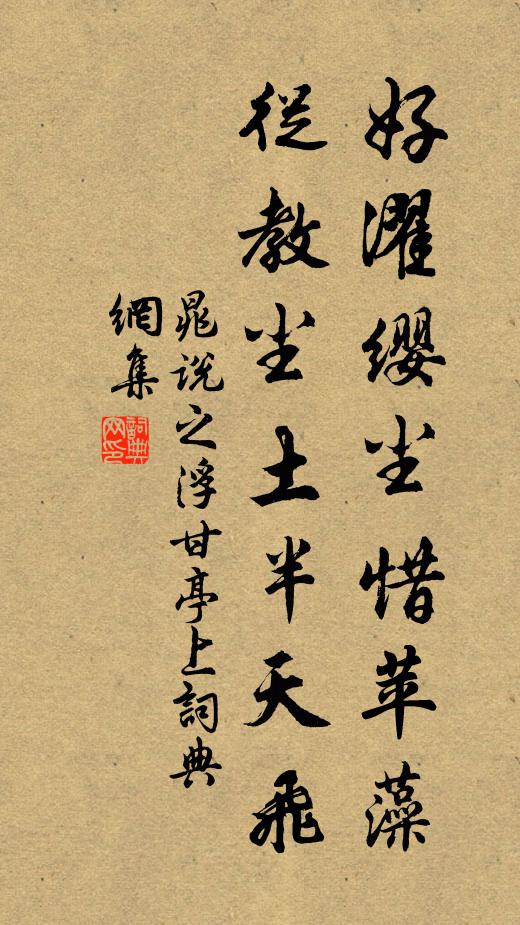 好濯纓尘惜苹藻
從教尘土半天飛
晁說之浮甘亭上詞典
網集
詞典
网印